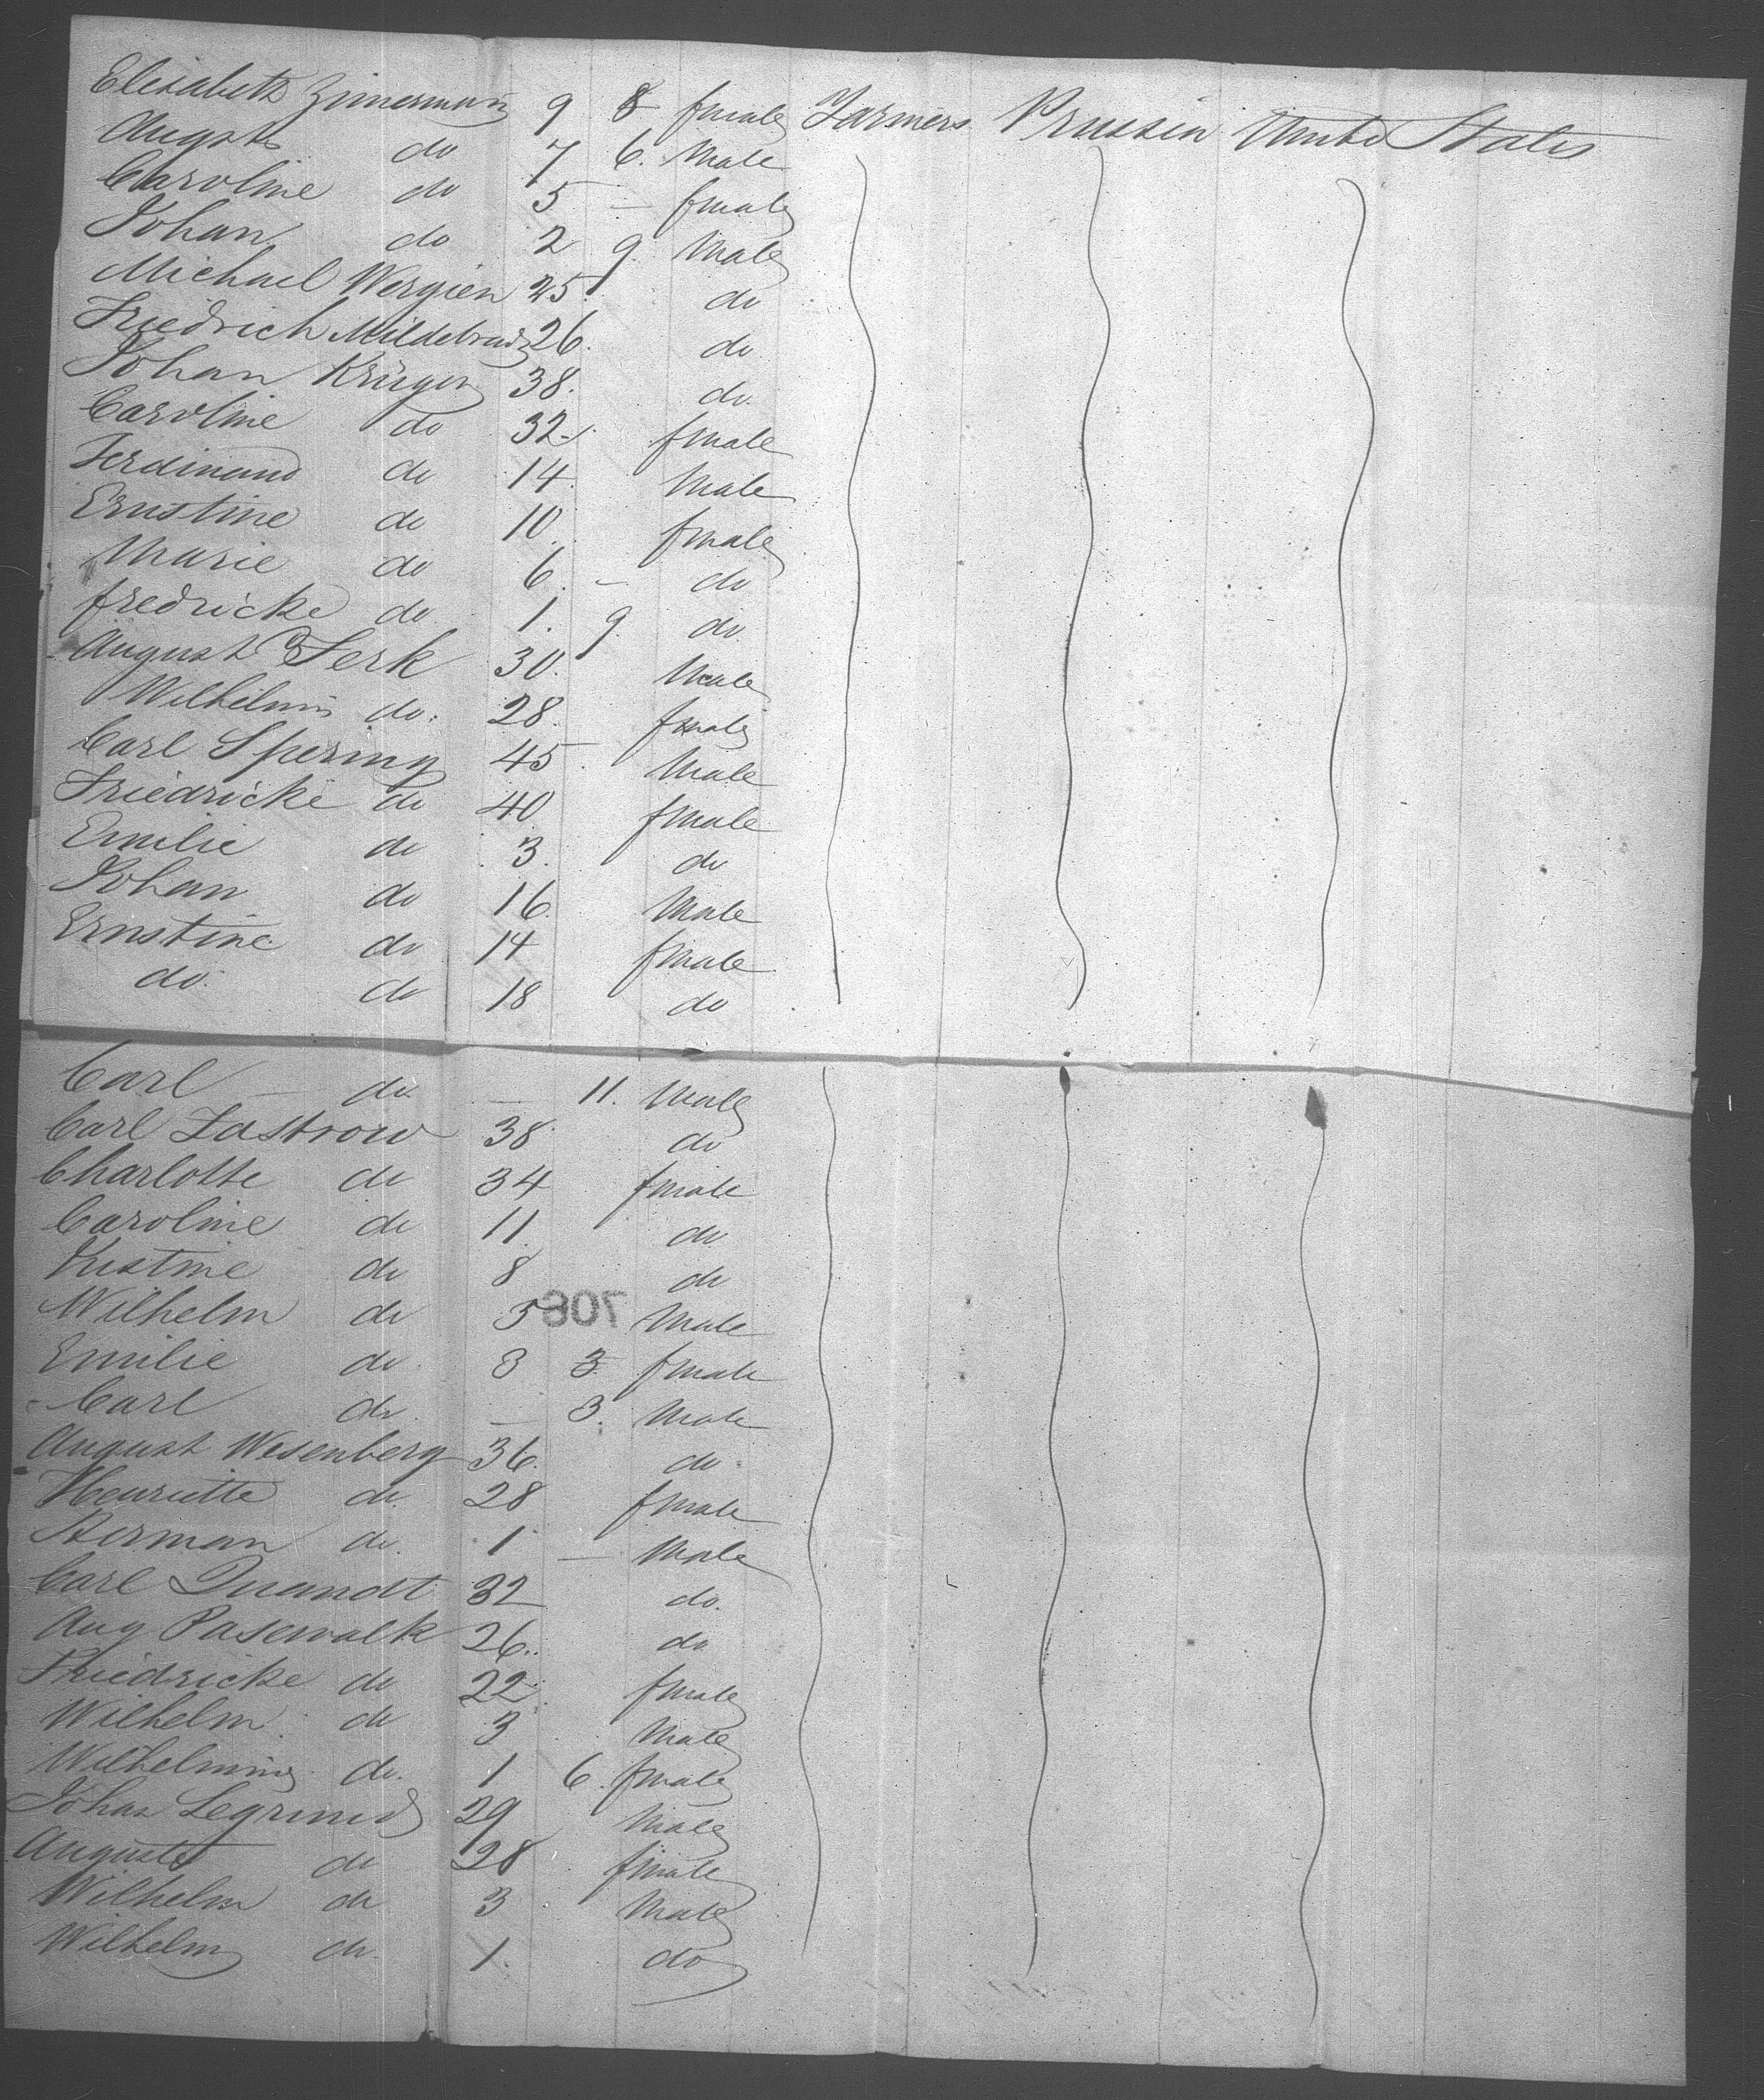 Elisabeth Zimerman 9 8 female Farmers Prussia United States
August do 7 6. Male
Caroline do 5 — female
Johan do 2 9. Male
Michael Wergien 25. do
Friedrich Mildebrand 26. do
Johan Krüger 38. do.
Caroline do 32. female
Ferdinand do 14. Male
Ernstine do 10. female
Marie do 6. — do
fredricke do. 1. 9. do.
August Serk 30. Male
Wilhelmin do. 28. female
Carl Spering 45. Male
Friedricke do 40 female
Emilie do 3. do
Johan do 16. Male
Ernstine do 14 female
do. do 18 do
Carl — do. — 11. Male
Carl Zastrow 38 do
Charlotte do 34 female
Caroline do 11. do
Justine do 8 do
Wilhelm do 5 Male
708
Emilie do. 3 3 female
Carl do. — 3. Male
August Wesenberg 36. do.
Henriette do. 28 female
Herman do. 1 — Male
Carl Quandt 32 do.
Aug Pasewalk 26. do
Friedricke do 22. female
Wilhelm do 3 Male
Wilhelmine do. 1 6. female
Johan 29 Male
Auguste do 28 female
Wilhelm do 3 Male
Wilhelm do. 1. do